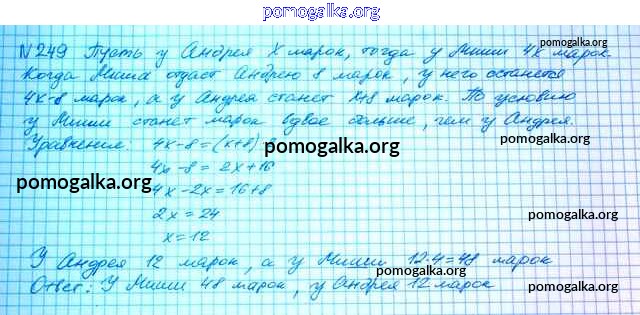 pomogalka.org
№249 Пусть у Андрея x марок, тогда у Миши 4x марок.
pomogalka.org
Когда Миша отдаст Андрею 8 марок, у него останется
4x-8 марок, а у Андрея станет x+8 марок. По условию
у Миши станет марок вдвое больше, чем у Андрея.
Уравнение: 4x-8=(x+8)
pomogalka.org
pomogalka.org
4x-8=2x+16
pomogalka.org
4x-2x=16+8
2x=24
pomogalka.org
x=12
У Андрея 12 марок, а у Миши 12·4=48 марок
pomogalka.org
Ответ: У Миши 48 марок, у Андрея 12 марок
pomogalka.org